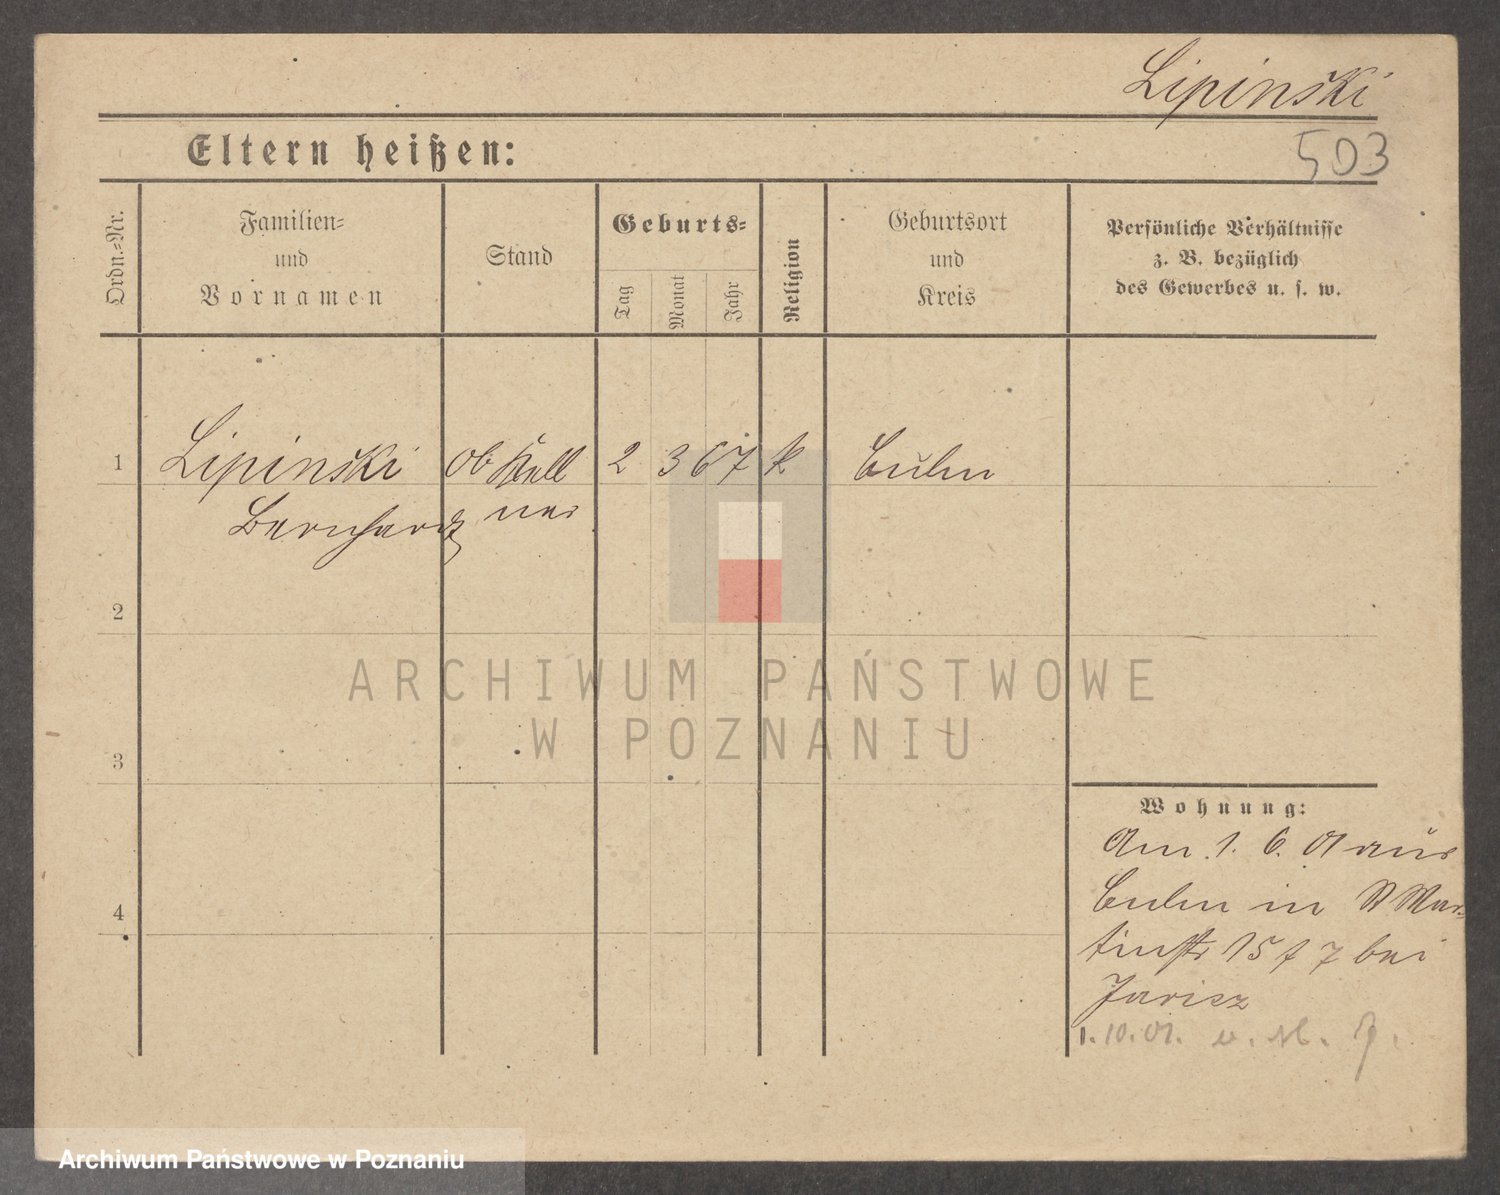 Lipinski
503
Eltern heißen:
Ordn.=Nr.
Familien=
und
Vornamen
Stand
Geburts=
Tag
Monat
Jahr
Religion
Geburtsort
und
Kreis
Persönliche Verhältnisse
z. B. bezüglich
des Gewerbes u. s. w.
1 Lipinski Ob Kell 2 3 67 k Culm
Bernhard ner
2
ARCHIWUM PAŃSTWOWE
W POZNANIU
3
Wohnung:
Am 1. 6. 01 aus
4
Culm in St Mar=
tinstr 15 bei
1.10.01.
Archiwum Państwowe w Poznaniu